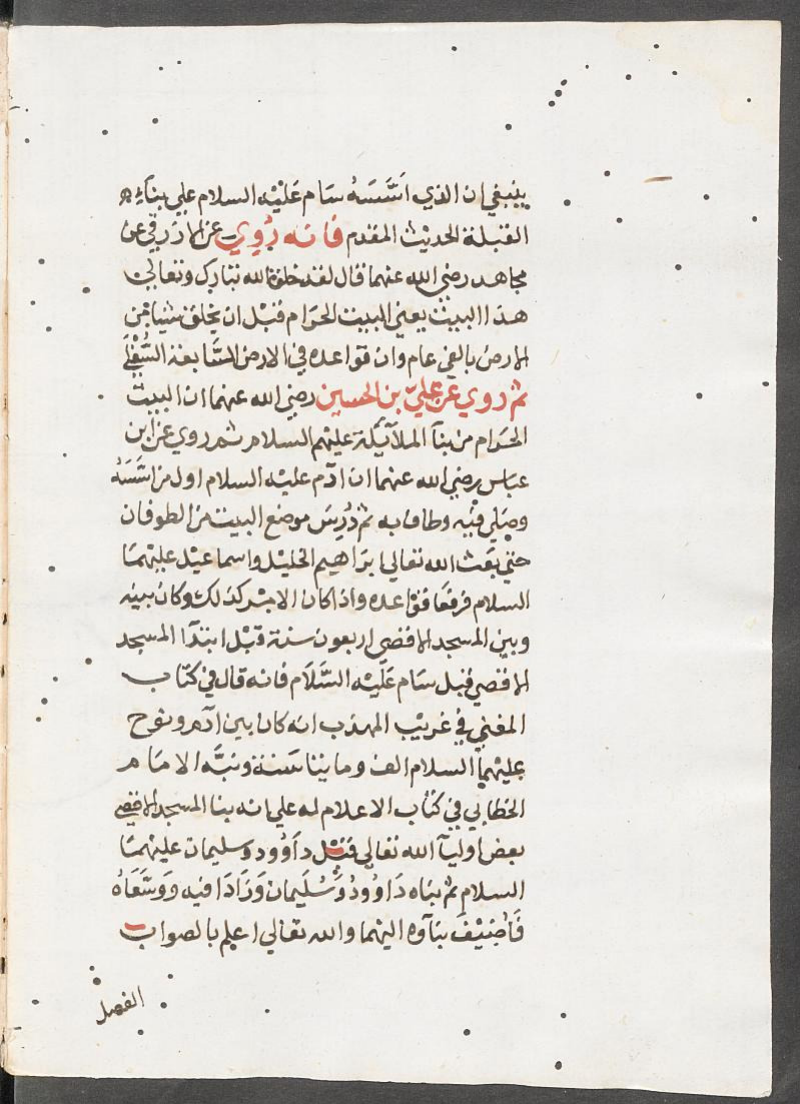 ينبغي ان الذي اَسَّسَهُ سَام عَلَيْه السلام علي بناَءِ
القبلة الحديث المقدم فانه رُوِي عن الازرقي عن
مجاهد رضي الله عنهما قال لقد خلق الله تبارك وتعالي
هذا البيت يعني البيت الحَرَام قبْل ان يخلق شيا من
الارض بالفي عام وان قواعده في الارض السَّابعة السُّفْلَي
ثم روي عن علي بن الحسين رضي الله عنهما ان البيت
الحَرام من بنآ الملآئكة عليهم السلام ثم روي عن ابن
عباس رضي الله عنهما ان ادٓم عليه السلام اول من اسَّسَهُ
وصَلي فيْه وطاف به ثم دُرِسَ موضع البيت من الطوفان
حتي بعَث الله تعالي ابرَاهيم الخليل واسماعيْل عليْهمَا
السلام فرفعَا قواعده واذا كان الامر كذلك وكان بينه
وبين المسجد الاقصي اربعون سنة قبْل ابتدآ المسجد
الاقصي قبل سَام عَلَيْه السَّلَام فانه قال في كتَاب
المغني في غريْب المهذب انه كان بين ادٓم ونوح
عليْهمَا السلام الف ومايتا سَنة ونبَّه الامَام
الخطابي في كتاب الاعلام له علي انه بنا المسجد الاقصي
بعض اوليآ الله تعالي قبْل دَاوُود وسليمان عليْهمَا
السلام ثم بناه دَاوُودُ وَسُلَيمان وَزَادَا فيه وَوَسَّعَاهُ
فَأُضِيْفَ بنآوه اليْهما والله تعَالي اعلم بالصواب
الفصل